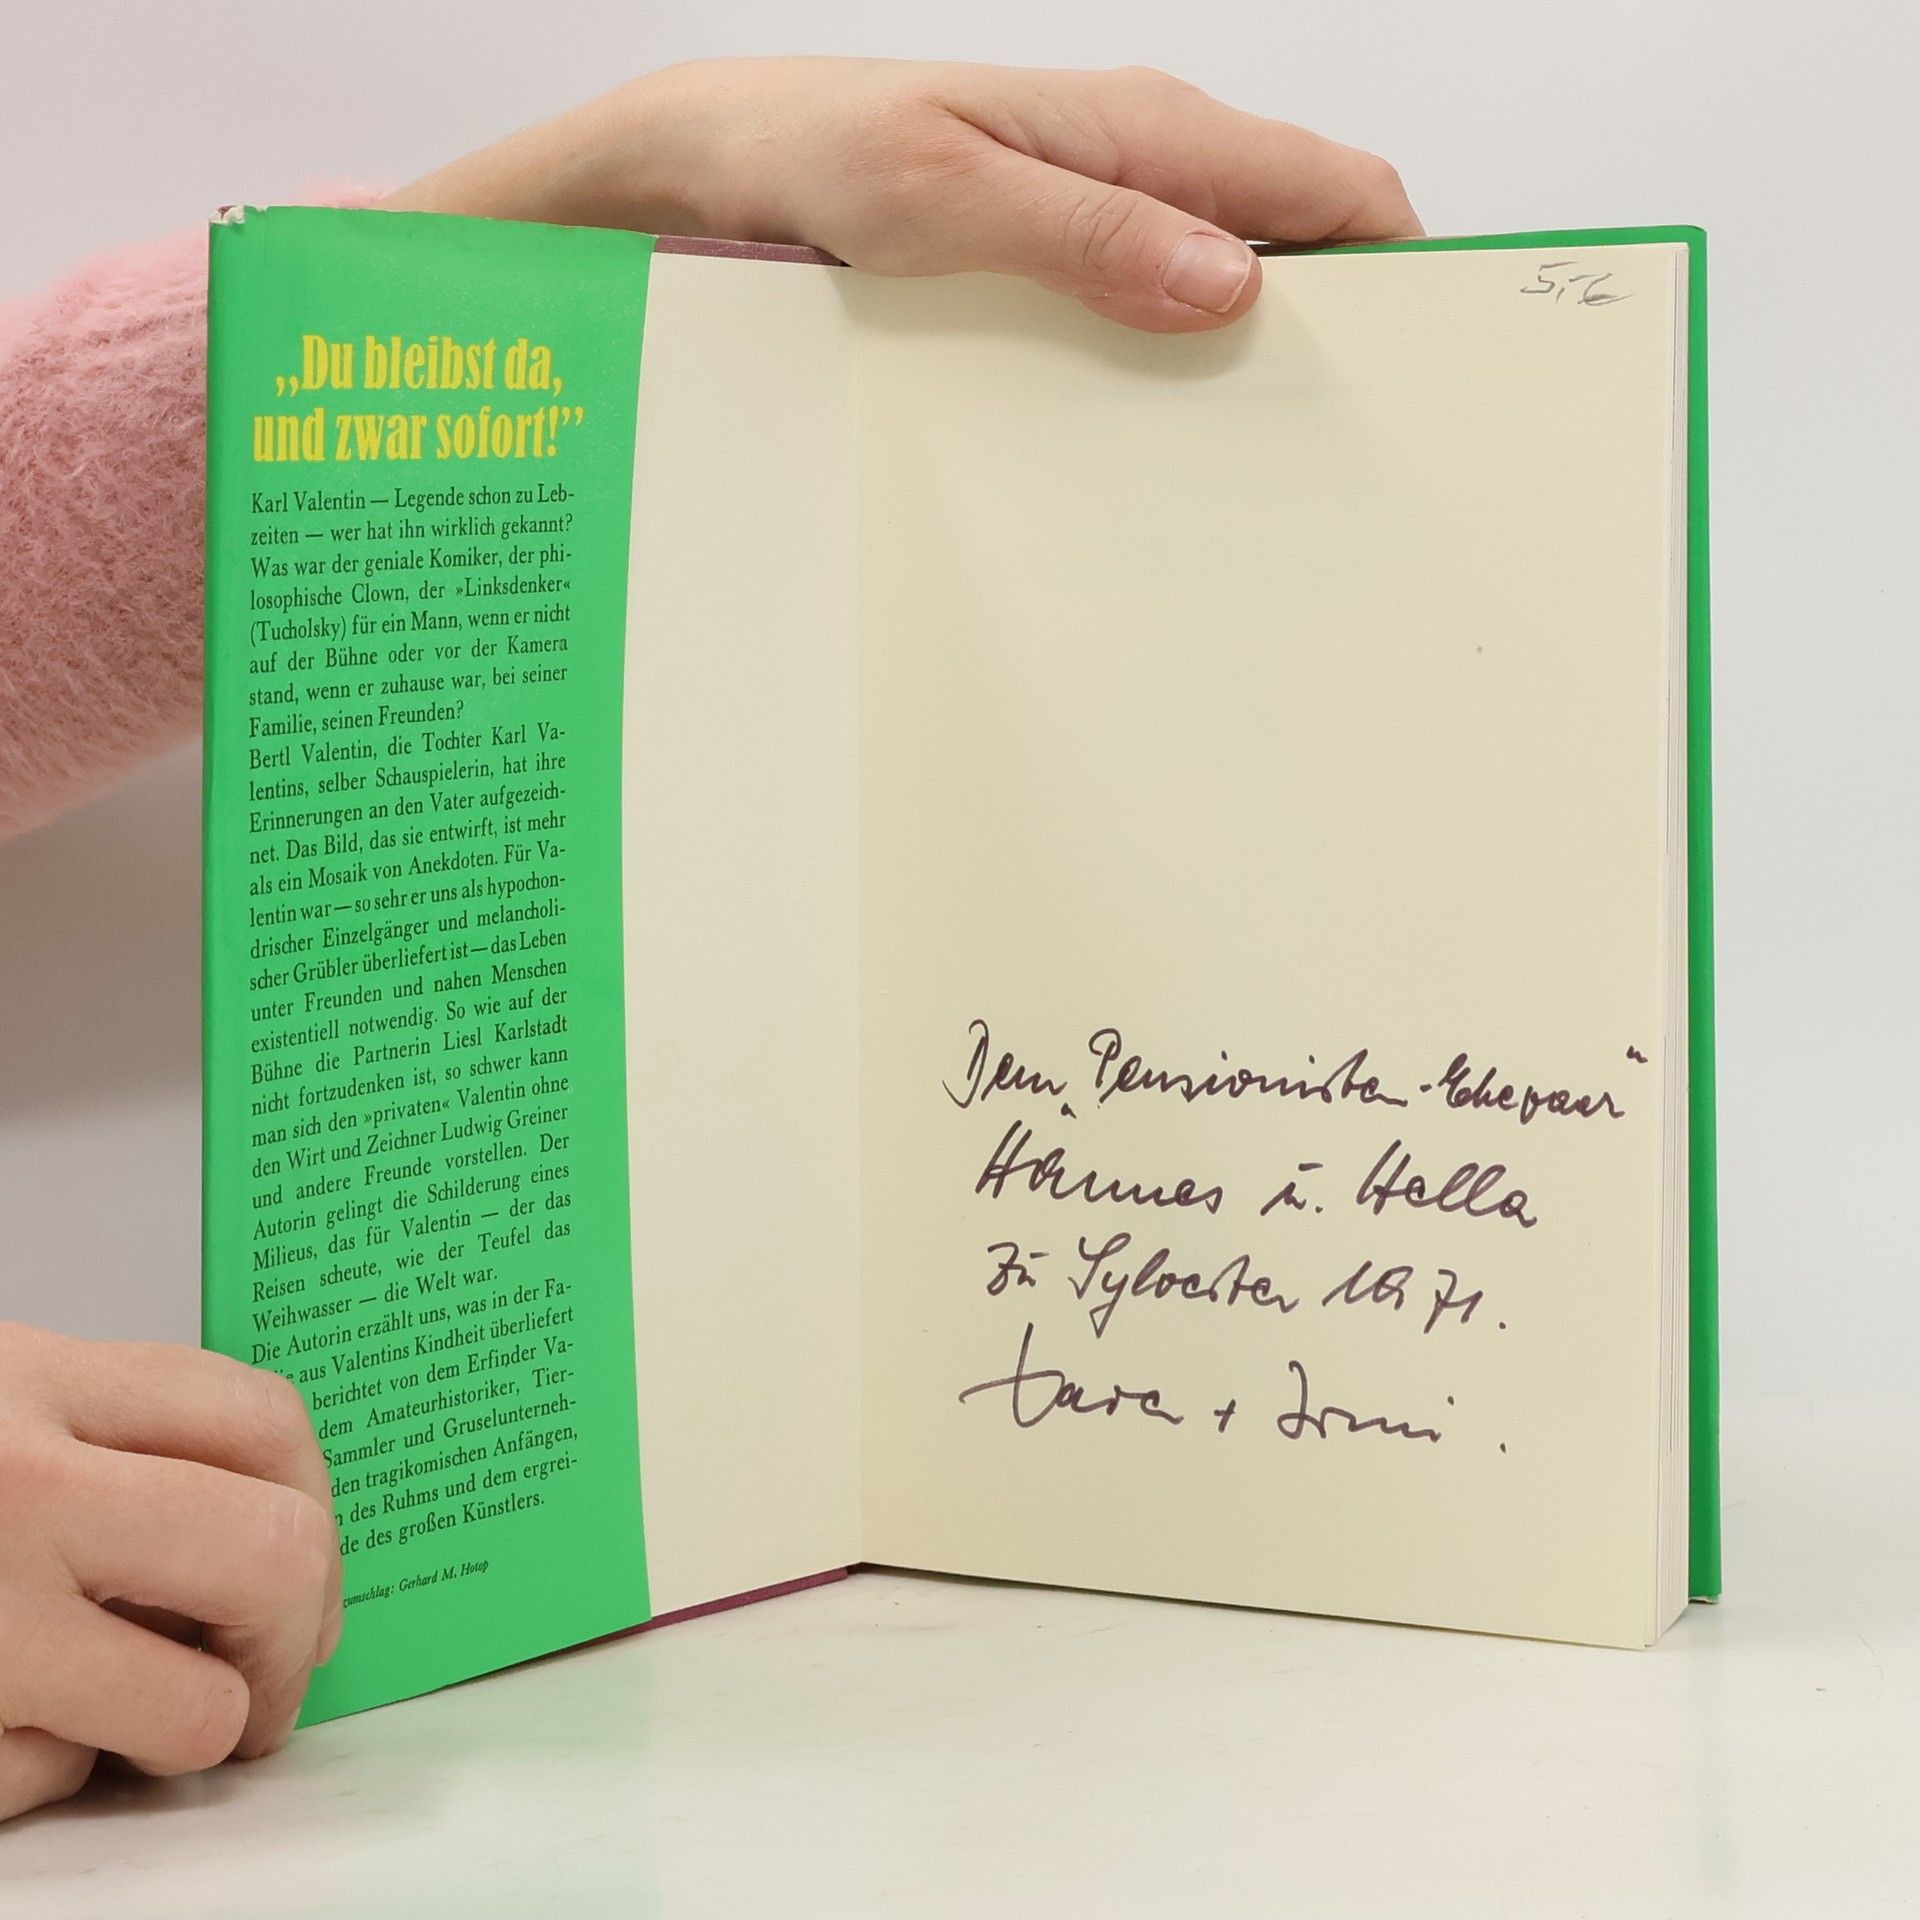 „Du bleibst da,
und zwar sofort!”
Karl Valentin — Legende schon zu Leb-
zeiten — wer hat ihn wirklich gekannt?
Was war der geniale Komiker, der phi-
losophische Clown, der »Linksdenker«
(Tucholsky) für ein Mann, wenn er nicht
auf der Bühne oder vor der Kamera
stand, wenn er zuhause war, bei seiner
Familie, seinen Freunden?
Bertl Valentin, die Tochter Karl Va-
lentins, selber Schauspielerin, hat ihre
Erinnerungen an den Vater aufgezeich-
net. Das Bild, das sie entwirft, ist mehr
als ein Mosaik von Anekdoten. Für Va-
lentin war — so sehr er uns als hypochon-
drischer Einzelgänger und melancholi-
scher Grübler überliefert ist — das Leben
unter Freunden und nahen Menschen
existentiell notwendig. So wie auf der
Bühne die Partnerin Liesl Karlstadt
nicht fortzudenken ist, so schwer kann
man sich den »privaten« Valentin ohne
den Wirt und Zeichner Ludwig Greiner
und andere Freunde vorstellen. Der
Autorin gelingt die Schilderung eines
Milieus, das für Valentin — der das
Reisen scheute, wie der Teufel das
Weihwasser — die Welt war.
Die Autorin erzählt uns, was in der Fa-
aus Valentins Kindheit überliefert
berichtet von dem Erfinder Va-
dem Amateurhistoriker, Tier-
Sammler und Gruselunterneh-
den tragikomischen Anfängen,
n des Ruhms und dem ergrei-
de des großen Künstlers.
zumschlag: Gerhard M. Hotop
5,-
Dem „Pensionisten-Ehepaar“
Hannes u. Hella
zu Sylvester 1971.
+ Irmi.